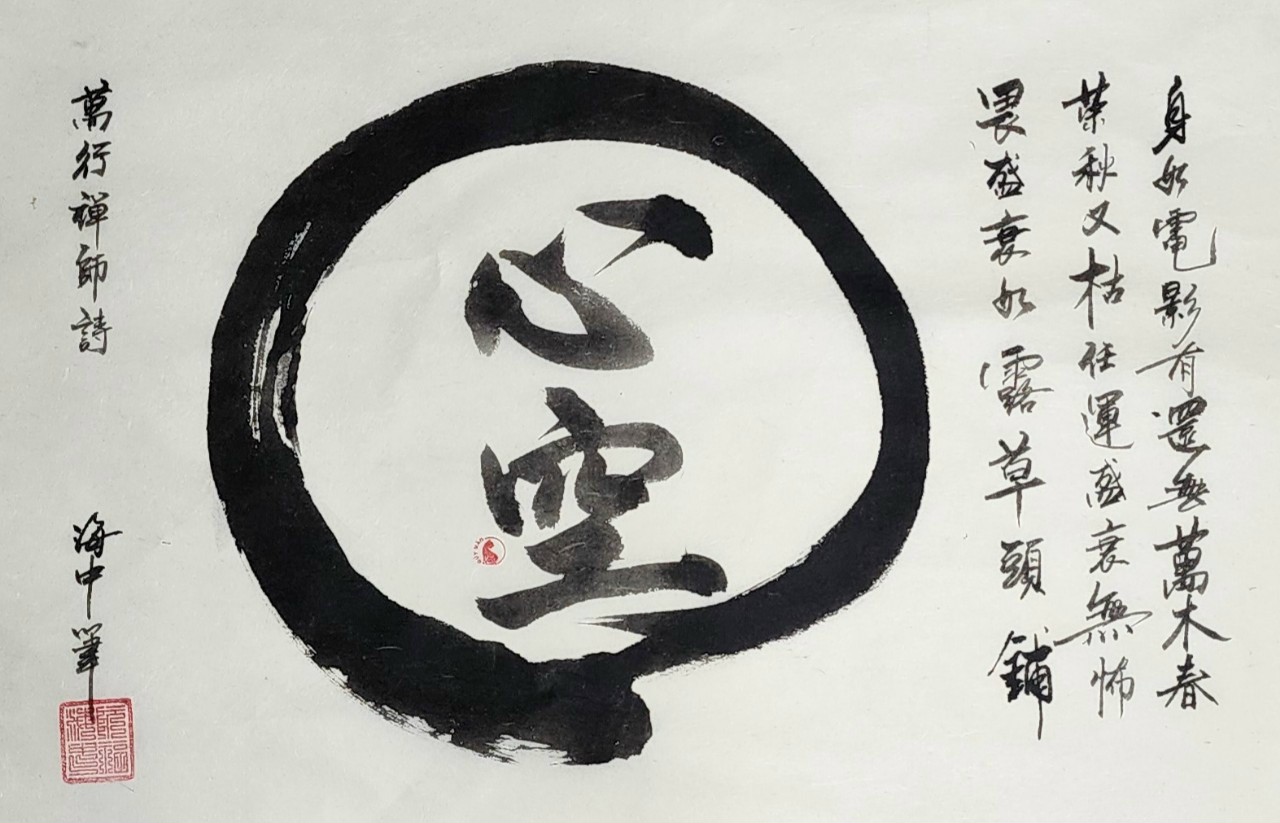 身如電影有還無萬木春
榮秋又枯任運盛衰無怖
畏盛衰如露草頭鋪
心空
萬行禪師詩
海中筆